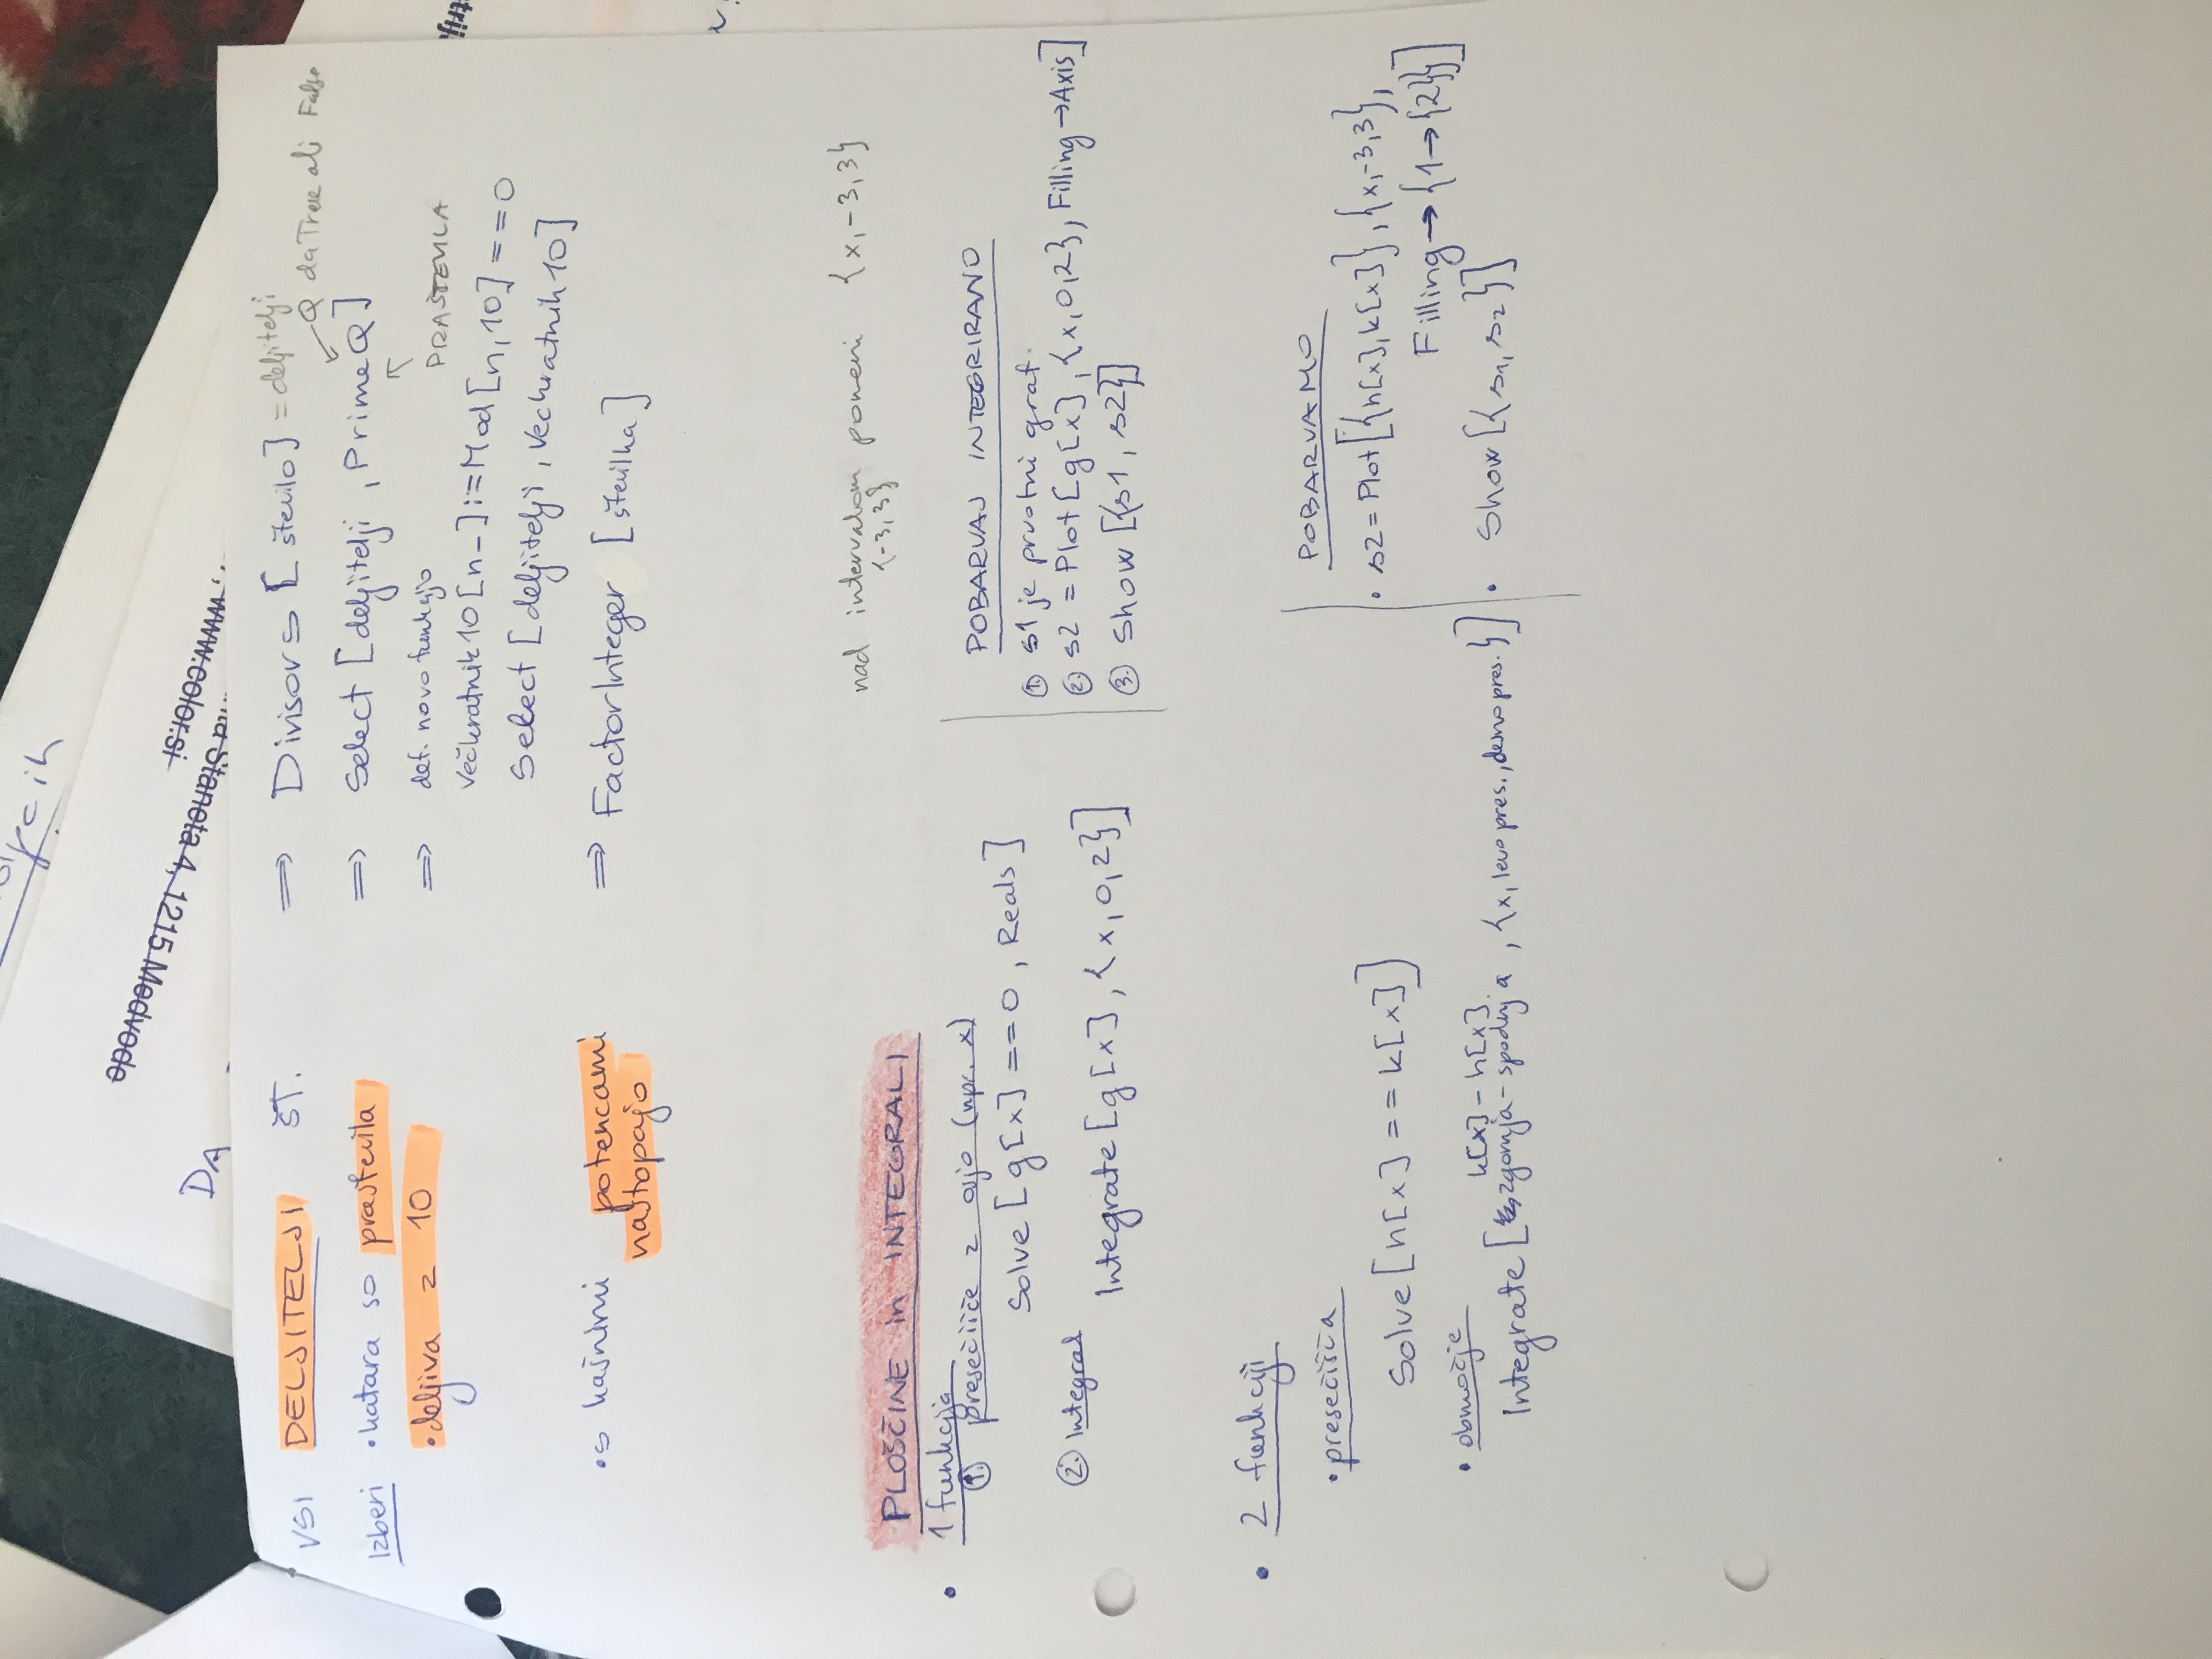 DA
na Staneta 4, 1215 Medvode
www.color.si
VSI DELJITELJI ŠT. ⟹ Divisors [število] = deljitelji
Q da True ali False
Izberi • katara so praštevila ⟹ Select [deljitelji, PrimeQ]
PRAŠTEVILA
• deljiva z 10 ⟹ def. novo funkcijo
Večkratnik10[n_]:=Mod[n,10]==0
Select [deljitelji, Veckratnik10]
• s kašnimi potencami nastopajo ⟹ FactorInteger [številka]
nad intervalom pomeni {x,-3,3}
{-3,3}
PLOŠČINE in INTEGRALI
• 1 funkcija
1. presečišče z osjo (npr. x)
Solve [g[x]==0, Reals]
2. Integral
Integrate [g[x], {x,0,2}]
POBARVAJ INTEGRIRANO
1. s1 je prvotni graf.
2. s2 = Plot[g[x], {x,0,2}, Filling→Axis]
3. Show [{s1, s2}]
• 2 funkciji
• presečišča
Solve [h[x] == k[x]]
• območje
k[x]-h[x]
Integrate [zgornja-spodnja, {x, levo pres., desno pres.}]
POBARVAMO
• s2 = Plot[{h[x],k[x]}, {x,-3,3},
Filling→{1→{2}}]
• Show[{s1, s2}]